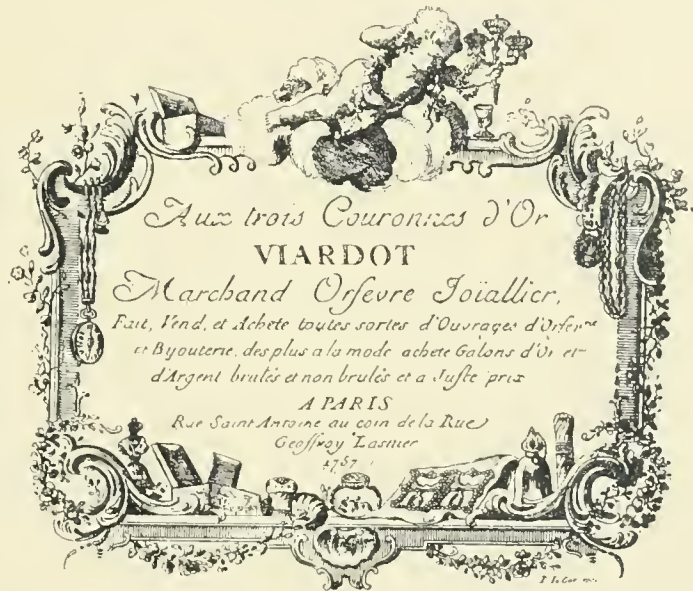 Aux trois Couronnes d'Or
VIARDOT
Marchand Orfevre Joïallier,
Fait, Vend, et Achete toutes sortes d'Ouvrages d'Orfev<sup>rie</sup>
et Byouterie, des plus a la mode achete Galons d'Or et
d'Argent brulés et non brulés et a Juste prix
A PARIS
Rue Saint Antoine au coin de la Rue
Geoffroy Lasnier
1757